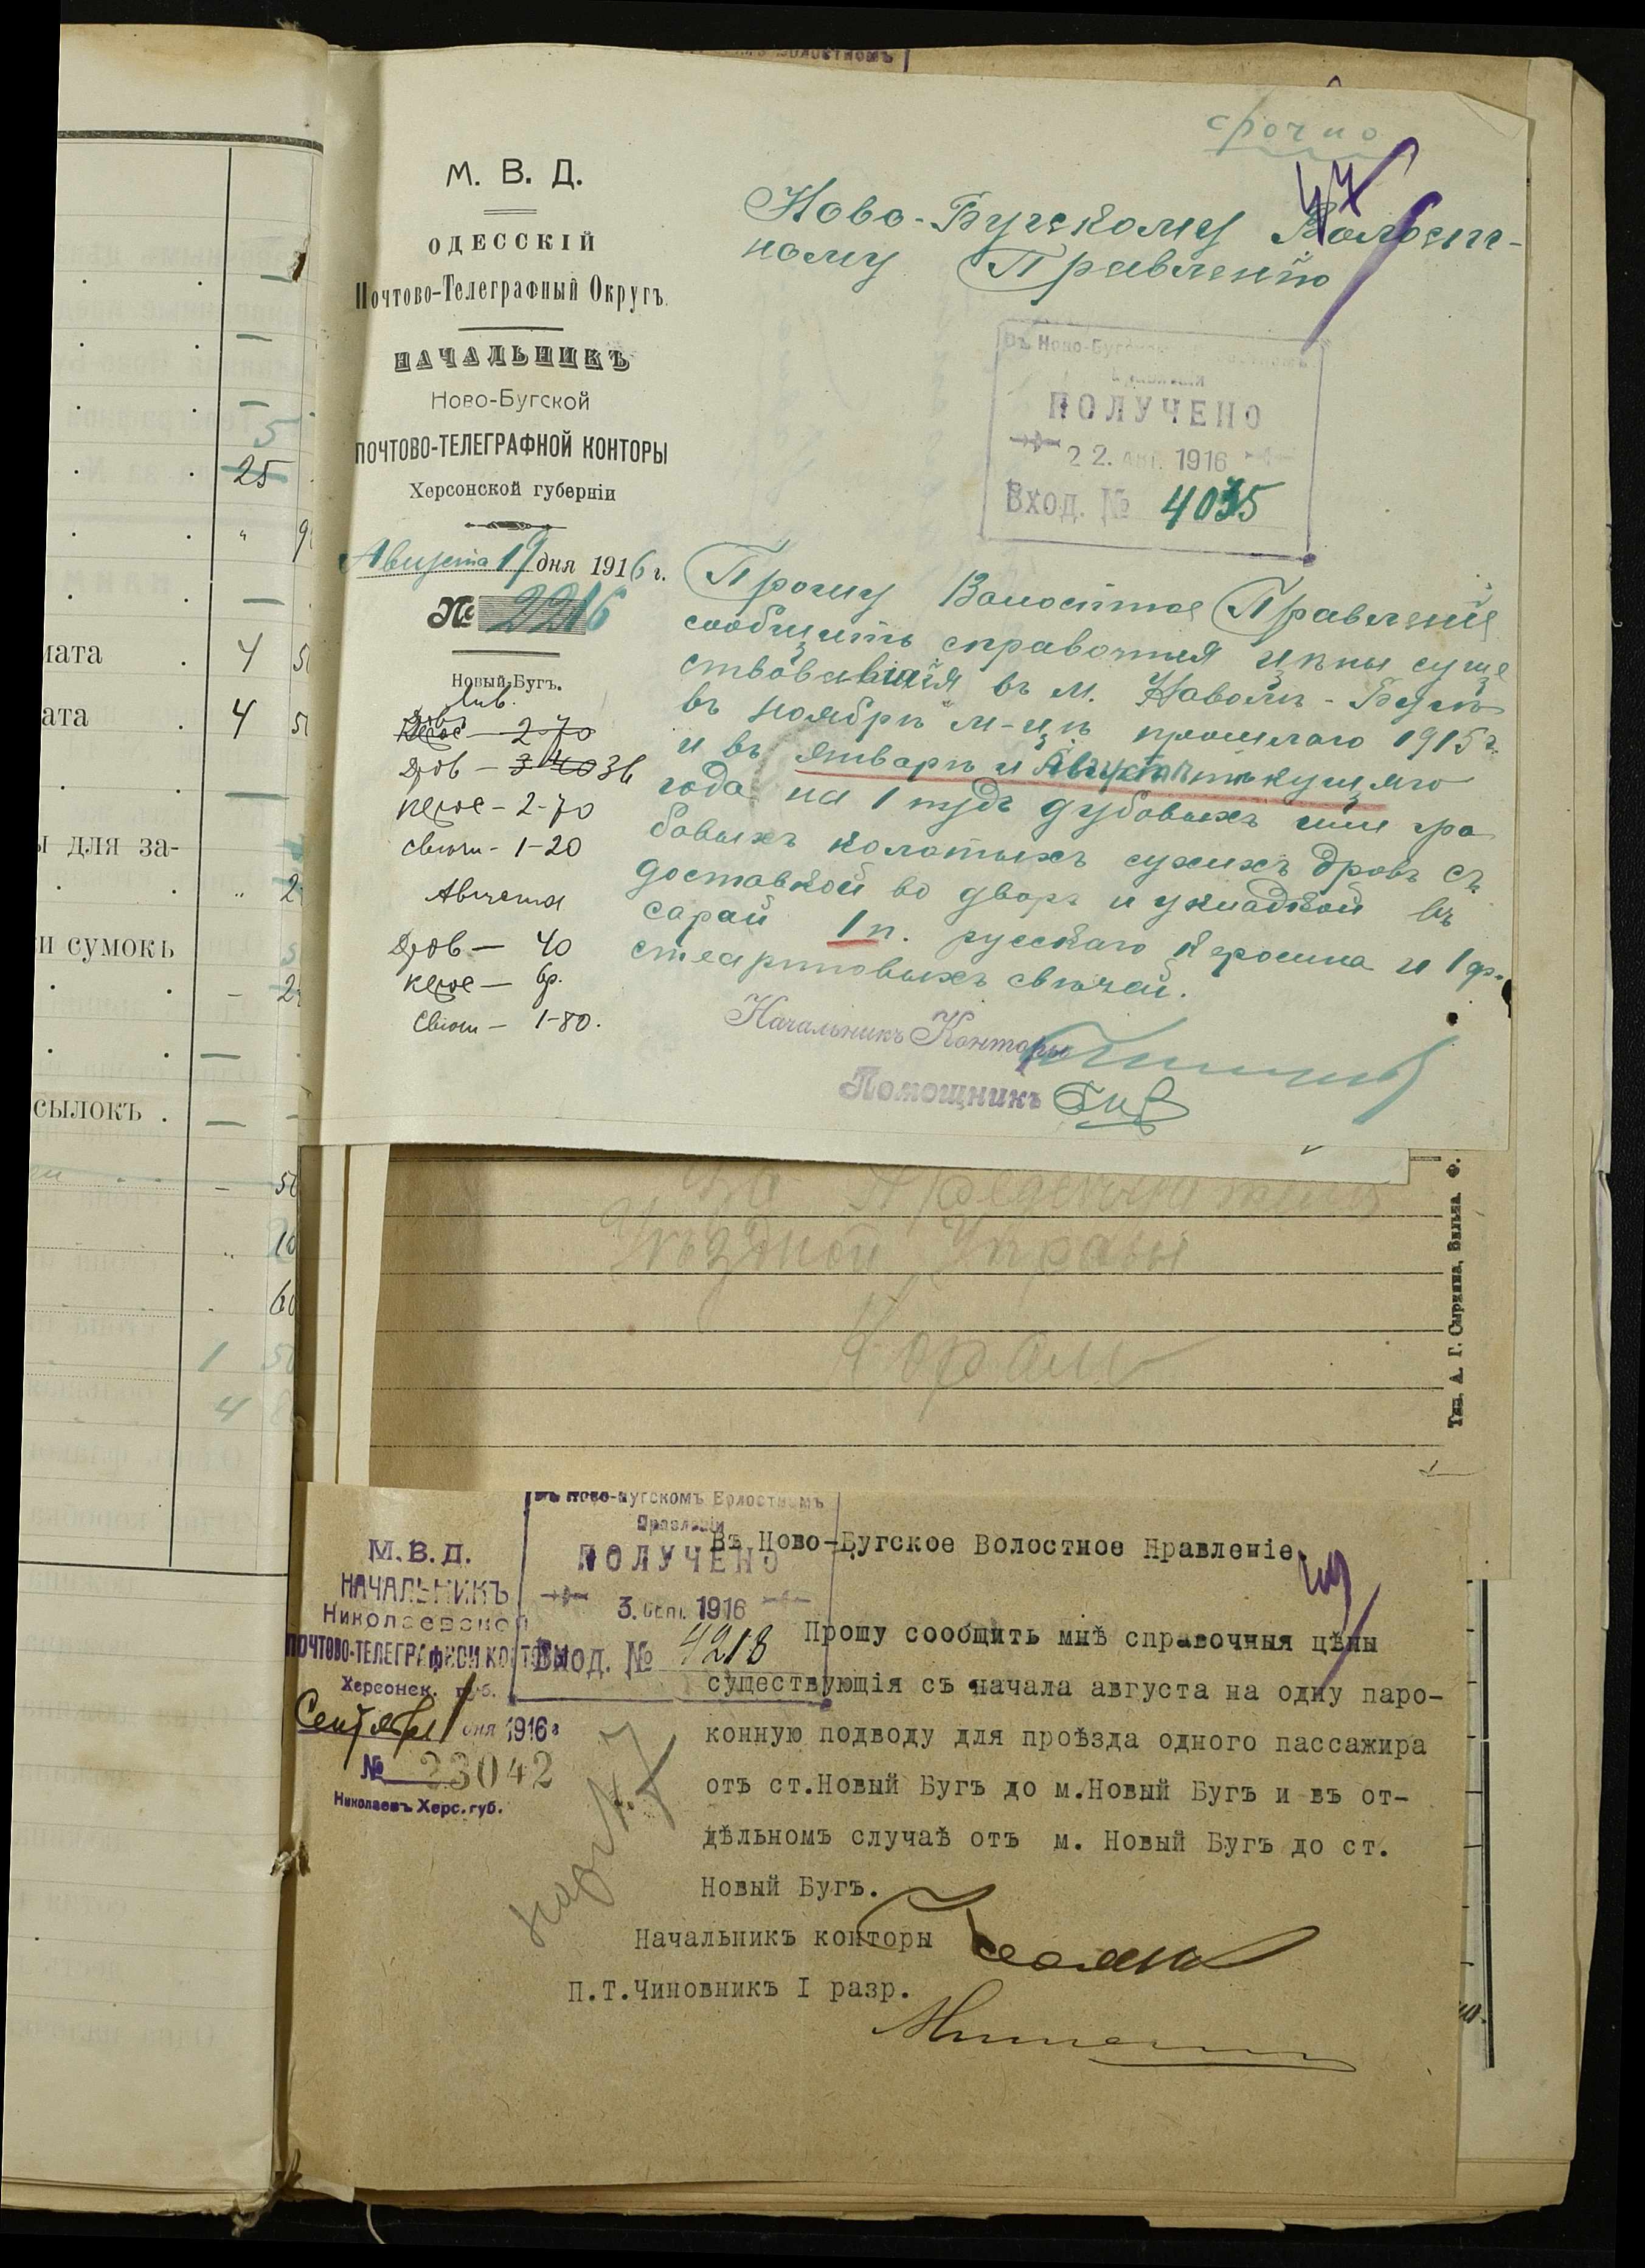 срочно
47
М. В. Д.
ОДЕССКІЙ
Почтово-Телеграфный Округъ.
НАЧАЛЬНИКЪ
Ново-Бугской
ПОЧТОВО-ТЕЛЕГРАФНОЙ КОНТОРЫ
Херсонской губерніи
Августа 19 дня 1916 г.
№ 2216
Новый-Бугъ.
Янв.
2-70
Дров — 3 40 36
керос — 2-70
свѣчи - 1-20
Августа
Дров — 40
керос — 6р.
Свѣчи — 1-80.
Ново-Бугскому Волост-
ному Правленію
Въ Ново-Бугскомъ Волостномъ
Правленіи
ПОЛУЧЕНО
22. АВГ. 1916
Вход. № 4035
Прошу Волостное Правленіе
сообщить справочныя цѣны суще
ствовавшія въ м. Новомъ-Бугѣ
въ ноябрѣ м-цѣ прошлаго 1915 г.
и въ январѣ и Августѣ текущаго
года на 1 пудъ дубовыхъ или гра
бовыхъ колотыхъ сухихъ дровъ съ
доставкой во дворъ и укладкой въ
сарай 1 п. русскаго керосина и 1 ф.
стеариновыхъ свѣчей.
Начальникъ Конторы
Помощникъ
Уѣздной Управы
Тип. А. Г. Сыркина, Вильна. Ф.
мата . 4 50
ата . 4 50
5
25
ы для за-
и сумокъ
сылокъ .
50
10
60
1 50
4
М.В.Д.
НАЧАЛЬНИКЪ
Николаевской
ПОЧТОВО-ТЕЛЕГРАФНОЙ КОНТОРЫ
Херсонск. губ.
Сентября 1 дня 1916 г
№ 23042
Николаевъ Херс. губ.
Въ Ново-Бугскомъ Волостномъ
Правленіи
ПОЛУЧЕНО
3. Сен. 1916
Вход. № 4218
Въ Ново-Бугское Волостное Правленіе.
Прошу сообщить мнѣ справочныя цѣны
существующія съ начала августа на одну паро-
конную подводу для проѣзда одного пассажира
отъ ст.Новый Бугъ до м.Новый Бугъ и въ от-
дѣльномъ случаѣ отъ м. Новый Бугъ до ст.
Новый Бугъ.
Начальникъ конторы
П.Т.Чиновникъ I разр.